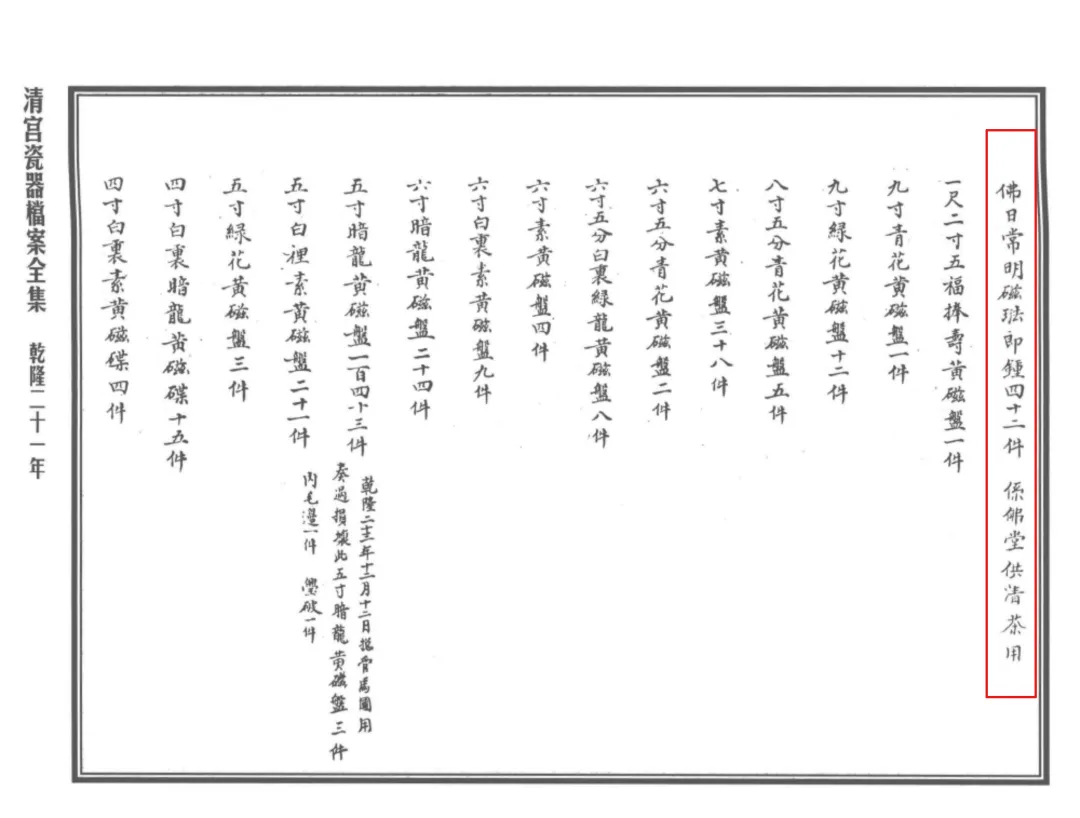 佛日常明磁琺郎鍾四十二件 係佛堂供清茶用
一尺二寸五福捧壽黃磁盤一件
九寸青花黃磁盤一件
九寸綠花黃磁盤十二件
八寸五分青花黃磁盤五件
七寸素黃磁盤三十八件
六寸五分青花黃磁盤二件
六寸五分白裏綠龍黃磁盤八件
六寸素黃磁盤四件
六寸白裏素黃磁盤九件
六寸暗龍黃磁盤二十四件
五寸暗龍黃磁盤一百四十三件
乾隆二十三年十二月十二日總管馬國用
奏過損壞此五寸暗龍黃磁盤三件
內毛邊一件 璺破一件
五寸白裡素黃磁盤二十一件
五寸綠花黃磁盤三件
四寸白裏暗龍黃磁碟十五件
四寸白裏素黃磁碟四件
清宮瓷器檔案全集 乾隆二十一年